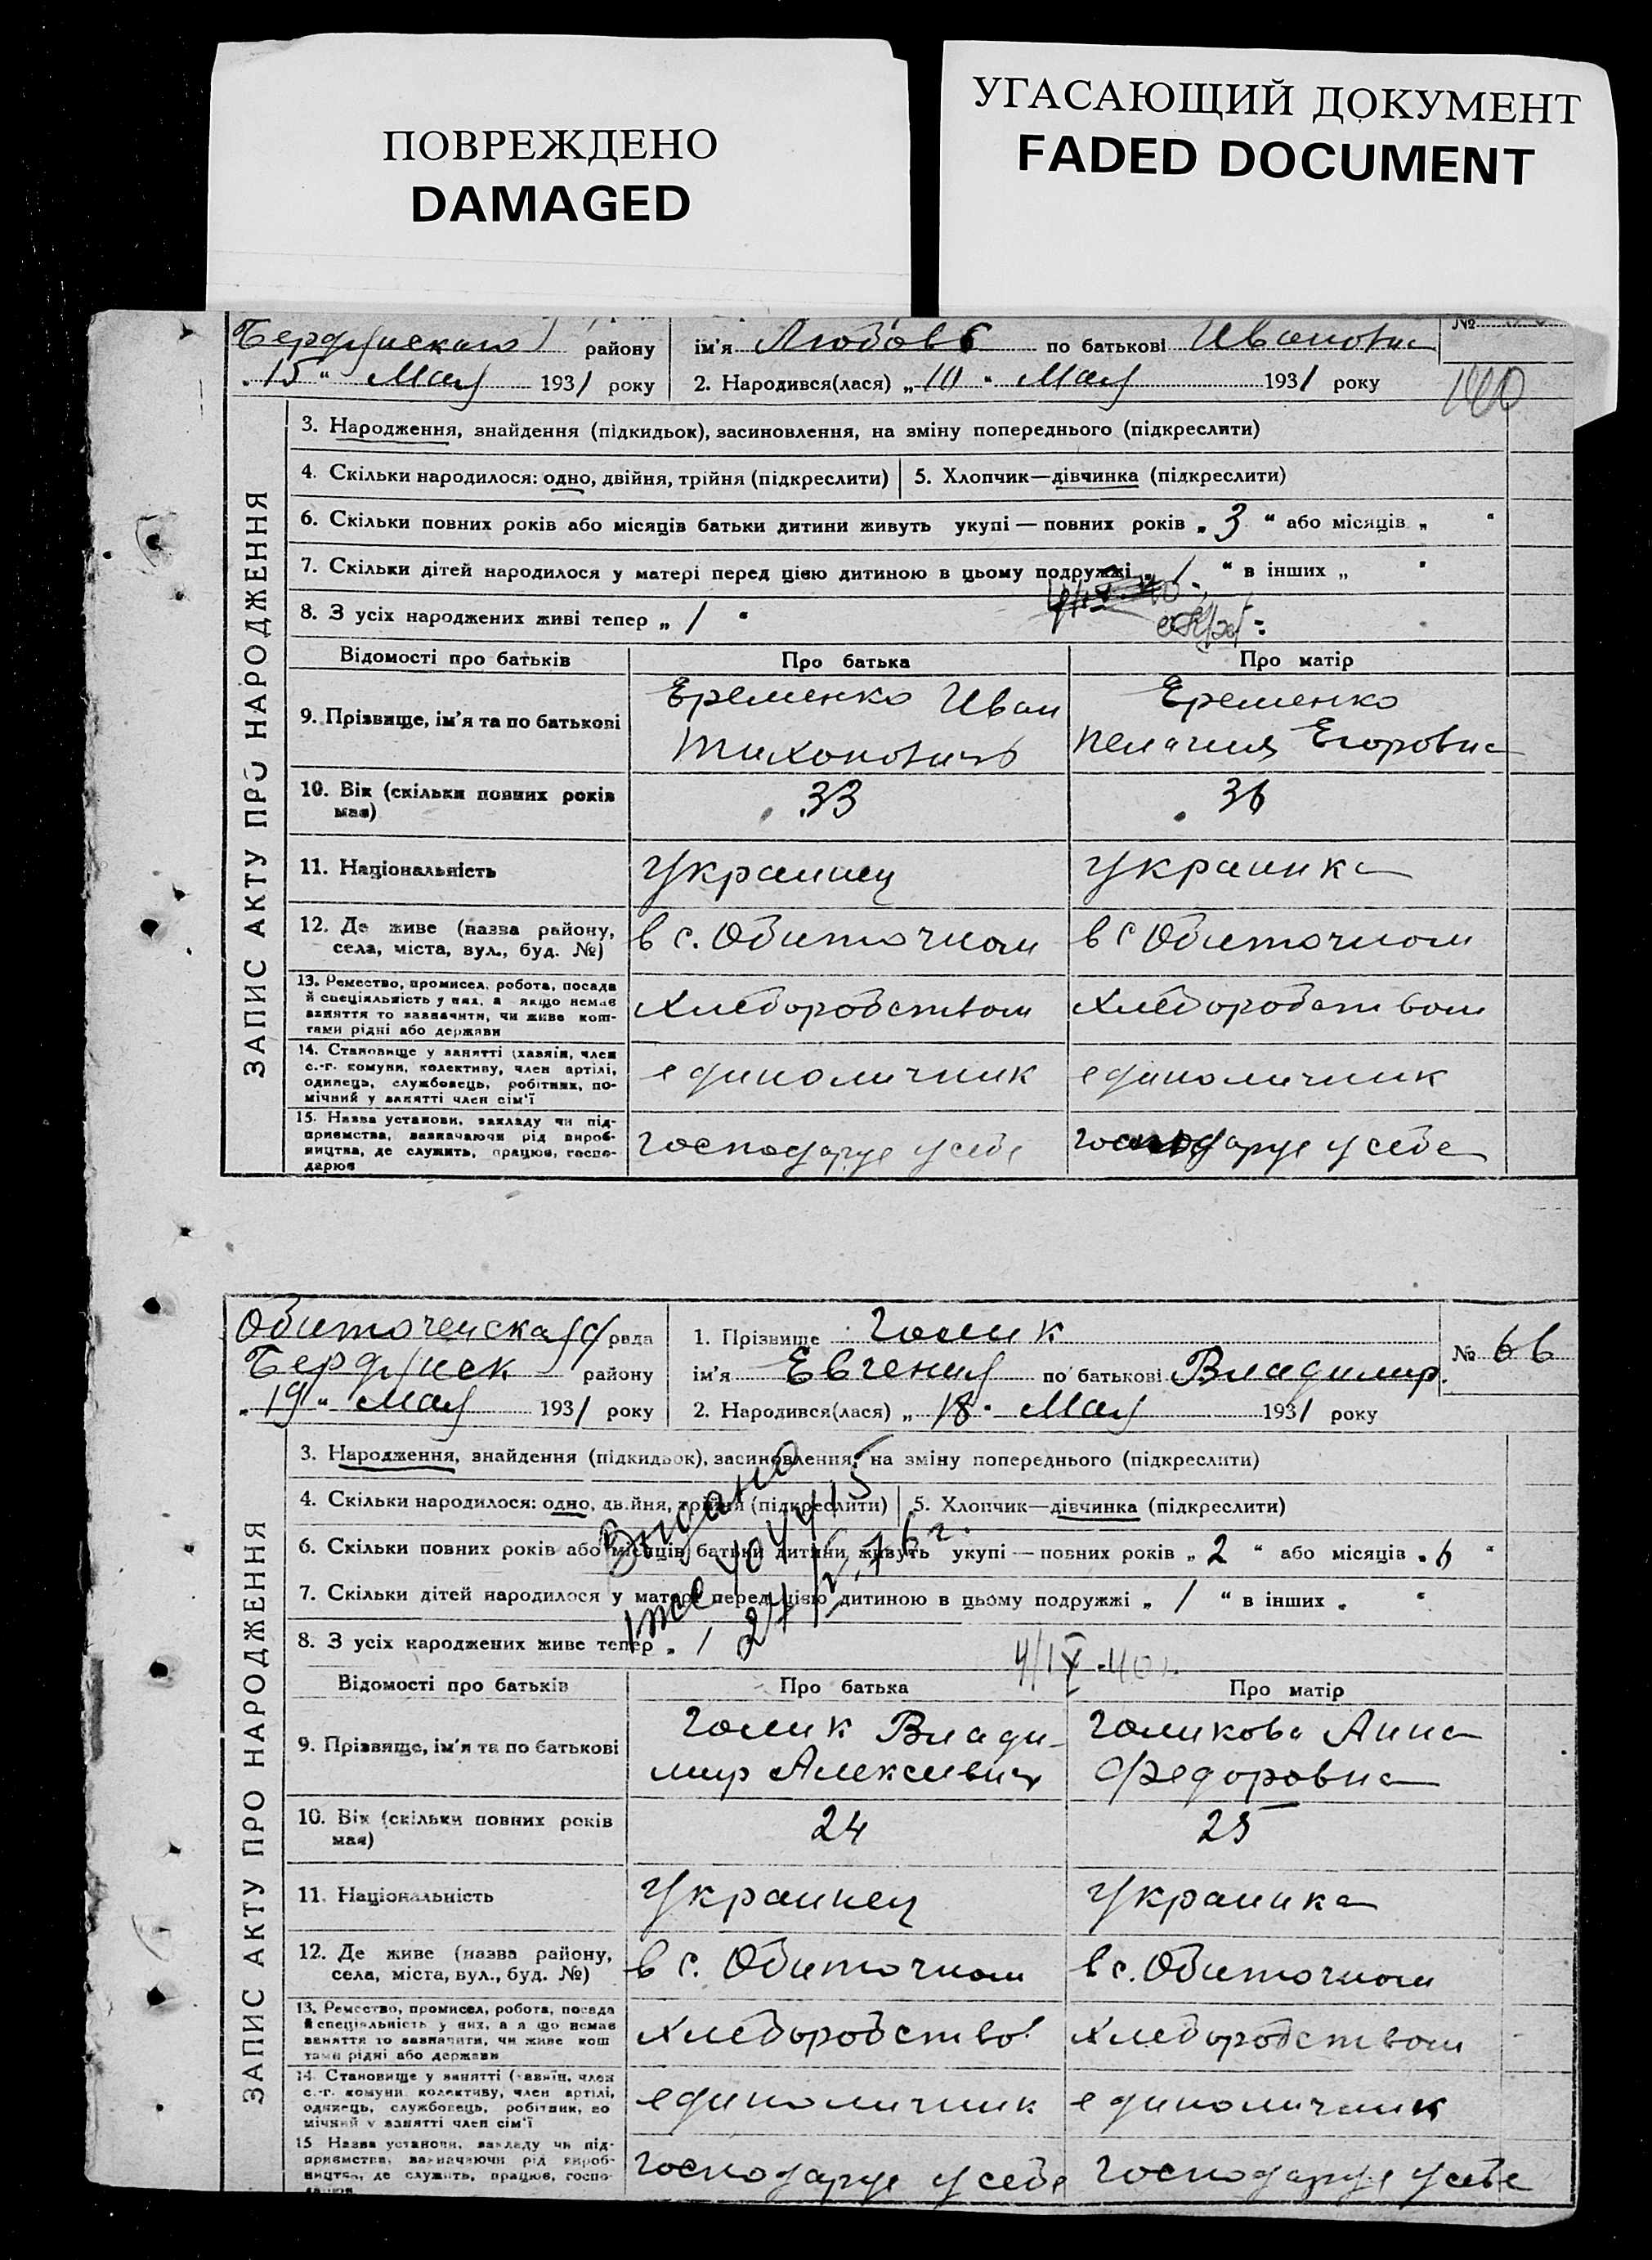 ПОВРЕЖДЕНО
DAMAGED
УГАСАЮЩИЙ ДОКУМЕНТ
FADED DOCUMENT
Бердянского району
ім'я Любовь по батькові Ивановна
№
„15“ Мая 1931 року
2. Народився(лася) „10“ Мая 1931 року
140
ЗАПИС АКТУ ПРО НАРОДЖЕННЯ
3. Народження, знайдення (підкидьок), засиновлення, на зміну попереднього (підкреслити)
4. Скільки народилося: одно, двійня, трійня (підкреслити)
5. Хлопчик—дівчинка (підкреслити)
6. Скільки повних років або місяців батьки дитини живуть укупі — повних років „3“ або місяців „ “
7. Скільки дітей народилося у матері перед цією дитиною в цьому подружжі „1“ в інших „ “
8. З усіх народжених живі тепер „1“
Відомості про батьків
Про батька
Про матір
9. Прізвище, ім'я та по батькові
Еременко Иван
Тихонович
Еременко
Пелагия Егоровна
10. Вік (скільки повних років
має)
33
36
11. Національність
Украинец
Украинка
12. Де живе (назва району,
села, міста, вул., буд. №)
в с. Обиточном
в с Обиточном
13. Ремество, промисел, робота, посада
й спеціяльність у них, а якщо немає
заняття то зазначити, чи живе кош-
тами рідні або держави
Хлебородством
Хлебородством
14. Становище у занятті (хазяїн, член
с.-г. комуни, колективу, член артілі,
одинець, службовець, робітник, по-
мічний у занятті член сім'ї
единоличник
единоличник
15. Назва установи, закладу чи під-
приємства, зазначаючи рід вироб-
ництва, де служить, працює, госпо-
дарює
господарує у себе
господарує у себе
Обиточенская с/рада
1. Прізвище Голик
№ 66
Бердянск району
ім'я Евгения по батькові Владимир.
„19“ Мая 1931 року
2. Народився(лася) „18“ Мая 1931 року
ЗАПИС АКТУ ПРО НАРОДЖЕННЯ
3. Народження, знайдення (підкидьок), засиновлення, на зміну попереднього (підкреслити)
4. Скільки народилося: одно, двійня, трійня (підкреслити)
5. Хлопчик—дівчинка (підкреслити)
6. Скільки повних років або місяців батьки дитини живуть укупі — повних років „2“ або місяців „6“
7. Скільки дітей народилося у матері перед цією дитиною в цьому подружжі „1“ в інших „ “
8. З усіх народжених живе тепер „1
Видано
4/IX.40 г.
Відомості про батьків
Про батька
Про матір
9. Прізвище, ім'я та по батькові
Голик Влади-
мир Алексеевич
Голикова Анна
Федоровна
10. Вік (скільки повних років
має)
24
25
11. Національність
Украинец
Украинка
12. Де живе (назва району,
села, міста, вул., буд. №)
в с. Обиточном
в с. Обиточном
13. Ремество, промисел, робота, посада
й спеціяльність у них, а якщо немає
заняття то зазначити, чи живе кош
тами рідні або держави
Хлебородство
Хлебородством
14 Становище у занятті (хазяїн, член
с.-г. комуни колективу, член артілі,
одинець, службовець, робітник, по
мічний у занятті член сім'ї
единоличник
единоличник
15 Назва установи, закладу чи під-
приємства, зазначаючи рід вироб-
ництва, де служить, працює, госпо-
господарує у себе
господарує у себе